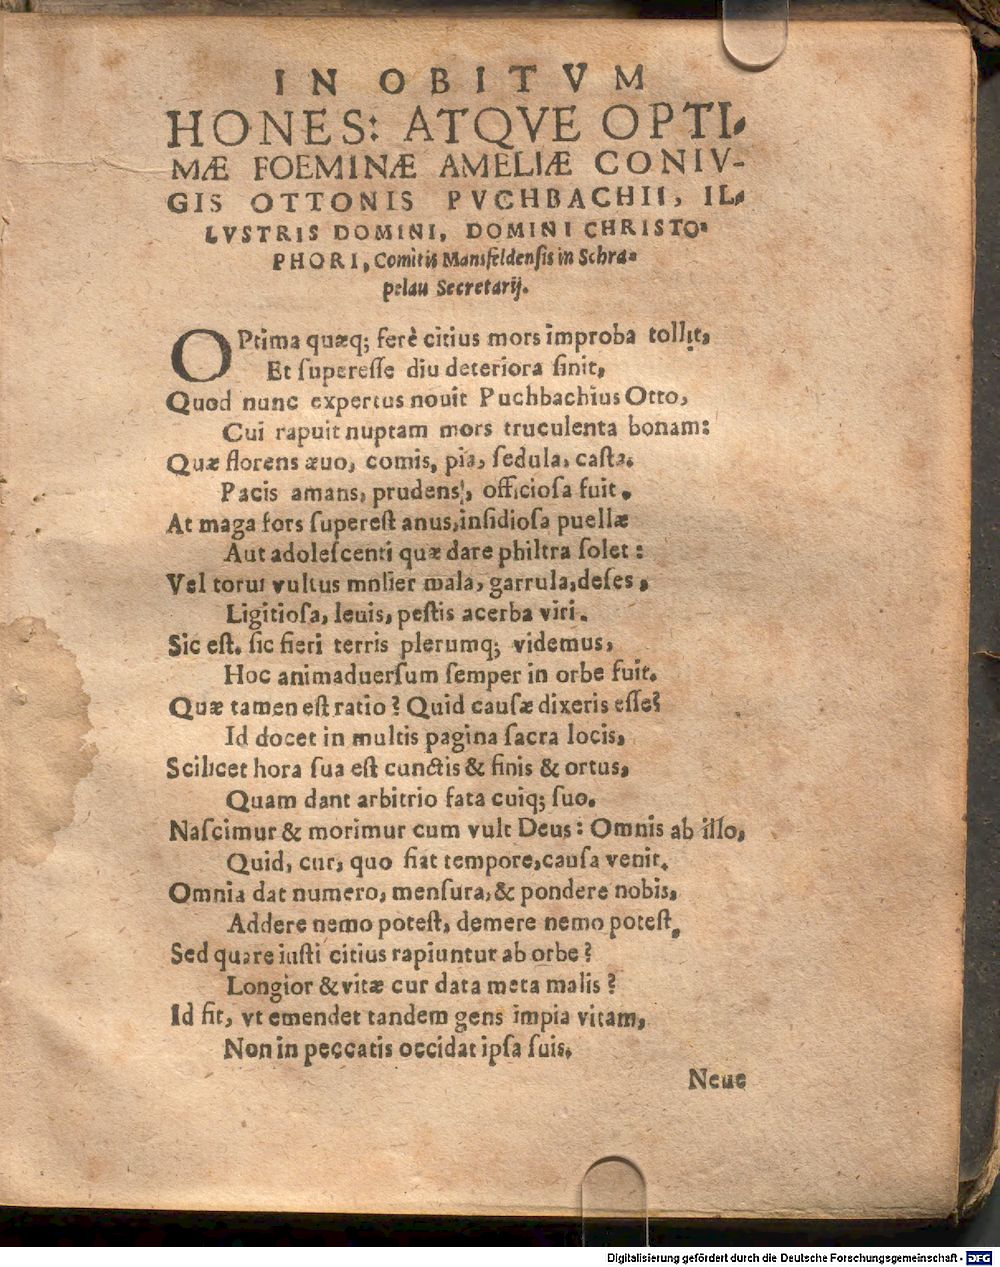 IN OBITVM
HONES: ATQVE OPTI-
MÆ FOEMINÆ AMELIÆ CONIV-
GIS OTTONIS PVCHBACHII, IL-
LVSTRIS DOMINI, DOMINI CHRISTO-
PHORI, Comitis Mansfeldensis in Schra-
pelau Secretarij.
OPtima quæq; ferè citius mors improba tollit,
Et superesse diu deteriora sinit,
Quod nunc expertus nouit Puchbachius Otto,
Cui rapuit nuptam mors truculenta bonam:
Quæ florens æuo, comis, pia, sedula, casta.
Pacis amans, prudens, officiosa fuit.
At maga fors superest anus, insidiosa puellæ
Aut adolescenti quæ dare philtra solet:
Vel torui vultus mulier mala, garrula, deses,
Ligitiosa, leuis, pestis acerba viri.
Sic est. sic fieri terris plerumq; videmus,
Hoc animaduersum semper in orbe fuit.
Quæ tamen est ratio? Quid causæ dixeris esse?
Id docet in multis pagina sacra locis,
Scilicet hora sua est cunctis & finis & ortus,
Quam dant arbitrio fata cuiq; suo.
Nascimur & morimur cum vult Deus: Omnis ab illo,
Quid, cur, quo fiat tempore, causa venit.
Omnia dat numero, mensura, & pondere nobis,
Addere nemo potest, demere nemo potest.
Sed quare iusti citius rapiuntur ab orbe?
Longior & vitæ cur data meta malis?
Id fit, vt emendet tandem gens impia vitam,
Non in peccatis occidat ipsa suis.
Neue
Digitalisierung gefördert durch die Deutsche Forschungsgemeinschaft - DFG